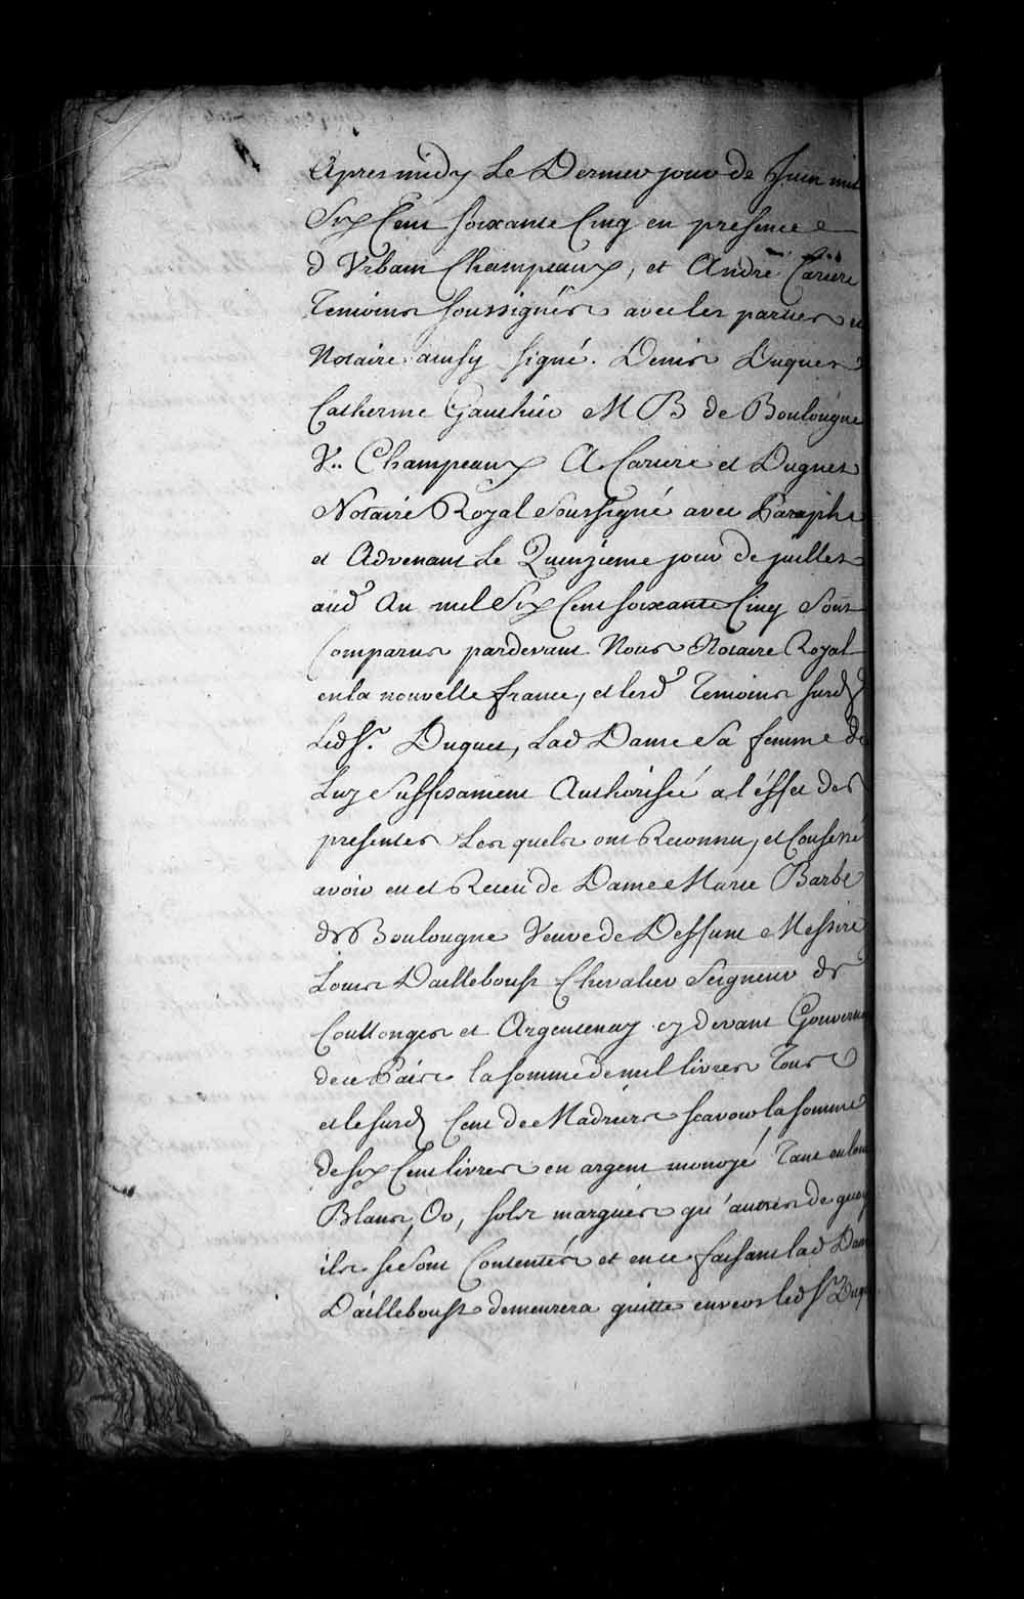 Apres midy Le Dernier jour de Juin mil
Six Cent soixante Cinq en presence
d Vrbain Champeaux, et André Cariere
Temoins soussignés avec les parties et
Notaire ainsy signé. Denis Duquet
Catherine Gauthier M B de Boulougne
V.. Champeaux A Cariere et Duquet
Notaire Royal Soussigné avec Paraphe
et Advenant Le Quinzieme jour de juillet
aud An mil Six Cent soixante Cinq Sont
Comparus pardevant Nous Notaire Royal
en la nouvelle france, et lesd Temoins susd
Led Sr. Duquet, Lad Dame Sa femme de
Luy Suffisament Authorisée a l'éffet des
presentes Les quels ont Reconnu, et Confessé
avoir eu et Receu de Dame Marie Barbe
de Boulougne Veuve de Deffunt Messire
Louis Dailleboust Chevalier Seigneur de
Coullonges et Argentenay cy devant Gouverneu
de ce Païs la somme de mil livres Tours
et le susd Cent de Madriers scavoir la somme
de six Cent livres en argent monoyé Tant en Louis
Blancs, Or, sols marqués qu'autres de quoy
ils se sont Contentés et en ce faisant lad Dam
D'ailleboust demeurera quitte envers led Sr Duq